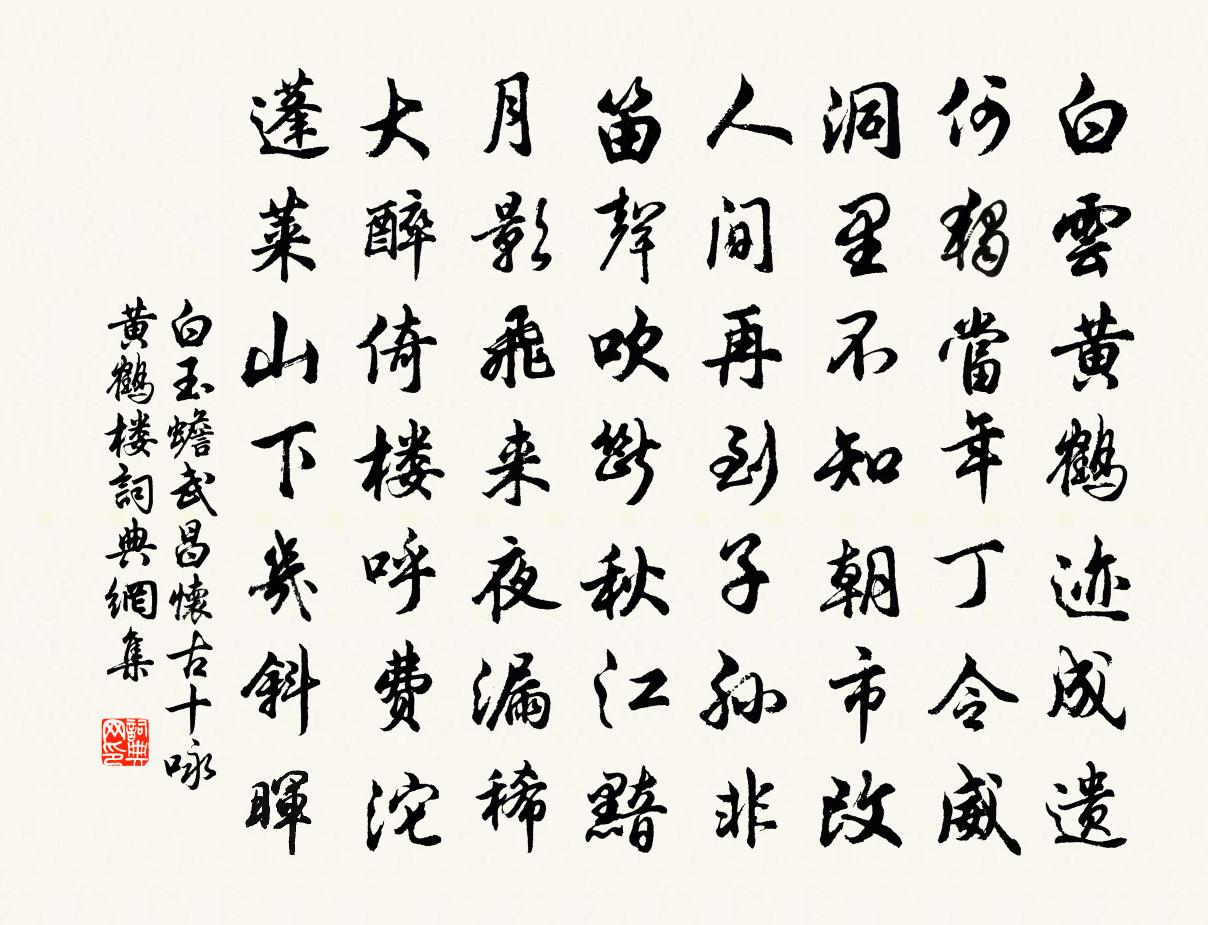 白雲黄鶴迹成遗
何獨當年丁令威
洞里不知朝市改
人间再到子孙非
笛聲吹斷秋江黯
月影飛来夜漏稀
大醉倚楼呼費沱
蓬莱山下幾斜暉
白玉蟾武昌懷古十咏
黄鶴楼詞典網集
詞典网印